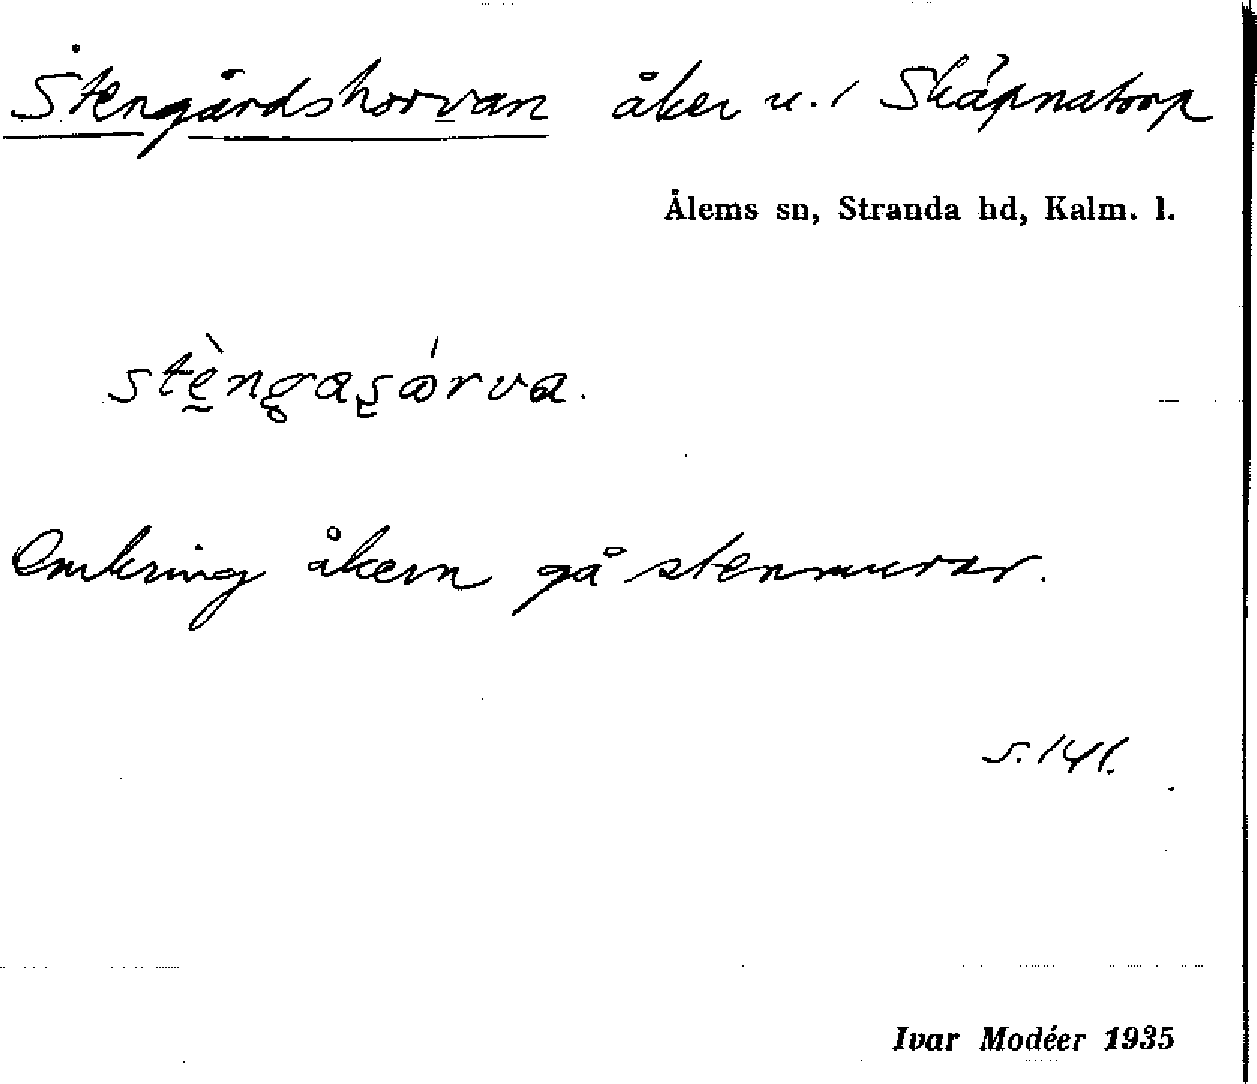 Stengårdshorvan åker u. 1 Skäpnatorp
Ålems sn, Stranda hd, Kalm. l.
Omkring åkern gå stenmurar.
s. 141.
Ivar Modéer 1935